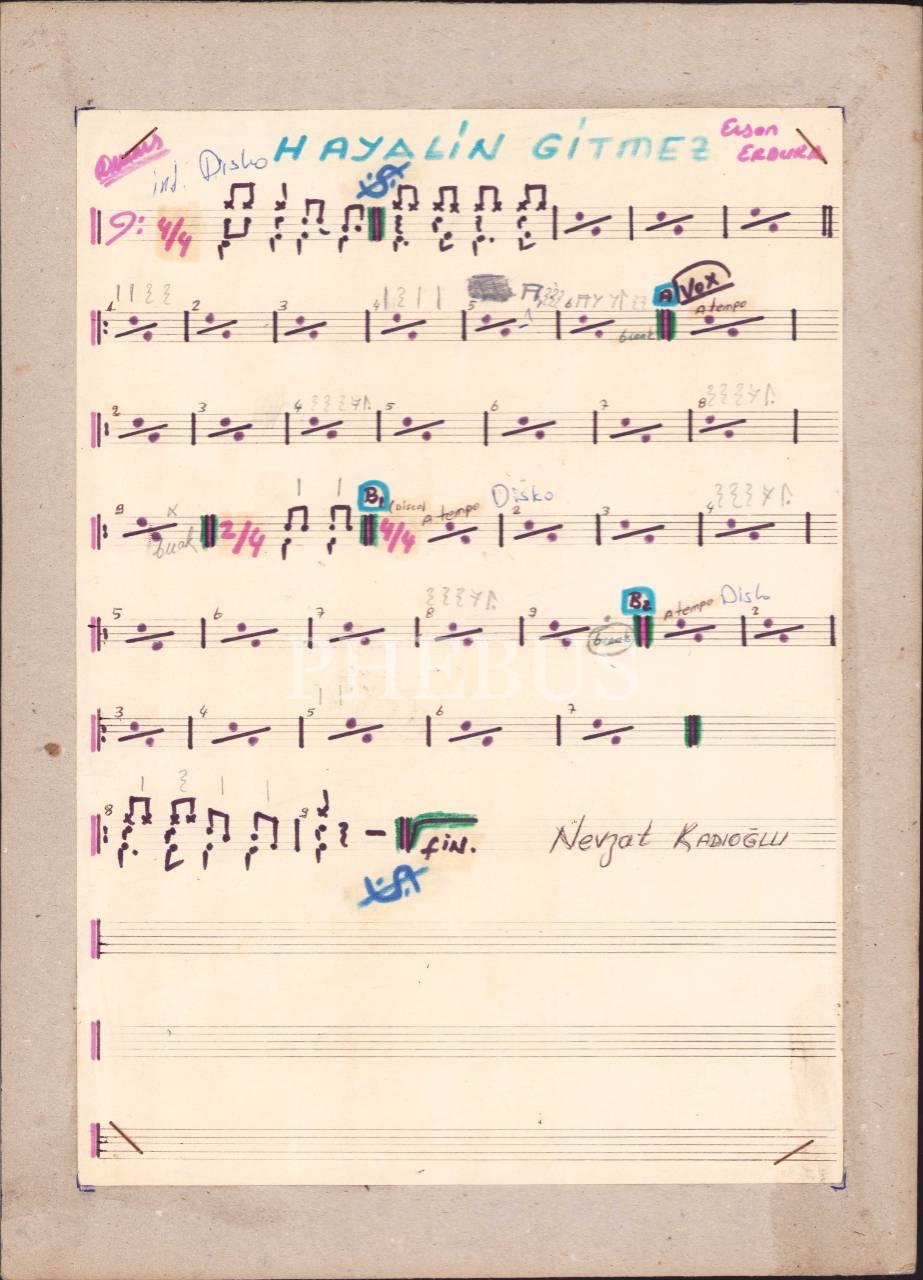 Drums
int. Disko HAYALİN GİTMEZ Erson ERDURA
4/4
1 2 3 4 5 6 break A VOX A tempo
2 3 4 5 6 7 8
9 break 2/4 B1 (Disco) 4/4 A tempo Disko 2 3 4
5 6 7 8 9 break B2 A tempo Disko 2
3 4 5 6 7
8 9 fin. Nevzat KADIOĞLU
PHEBUS